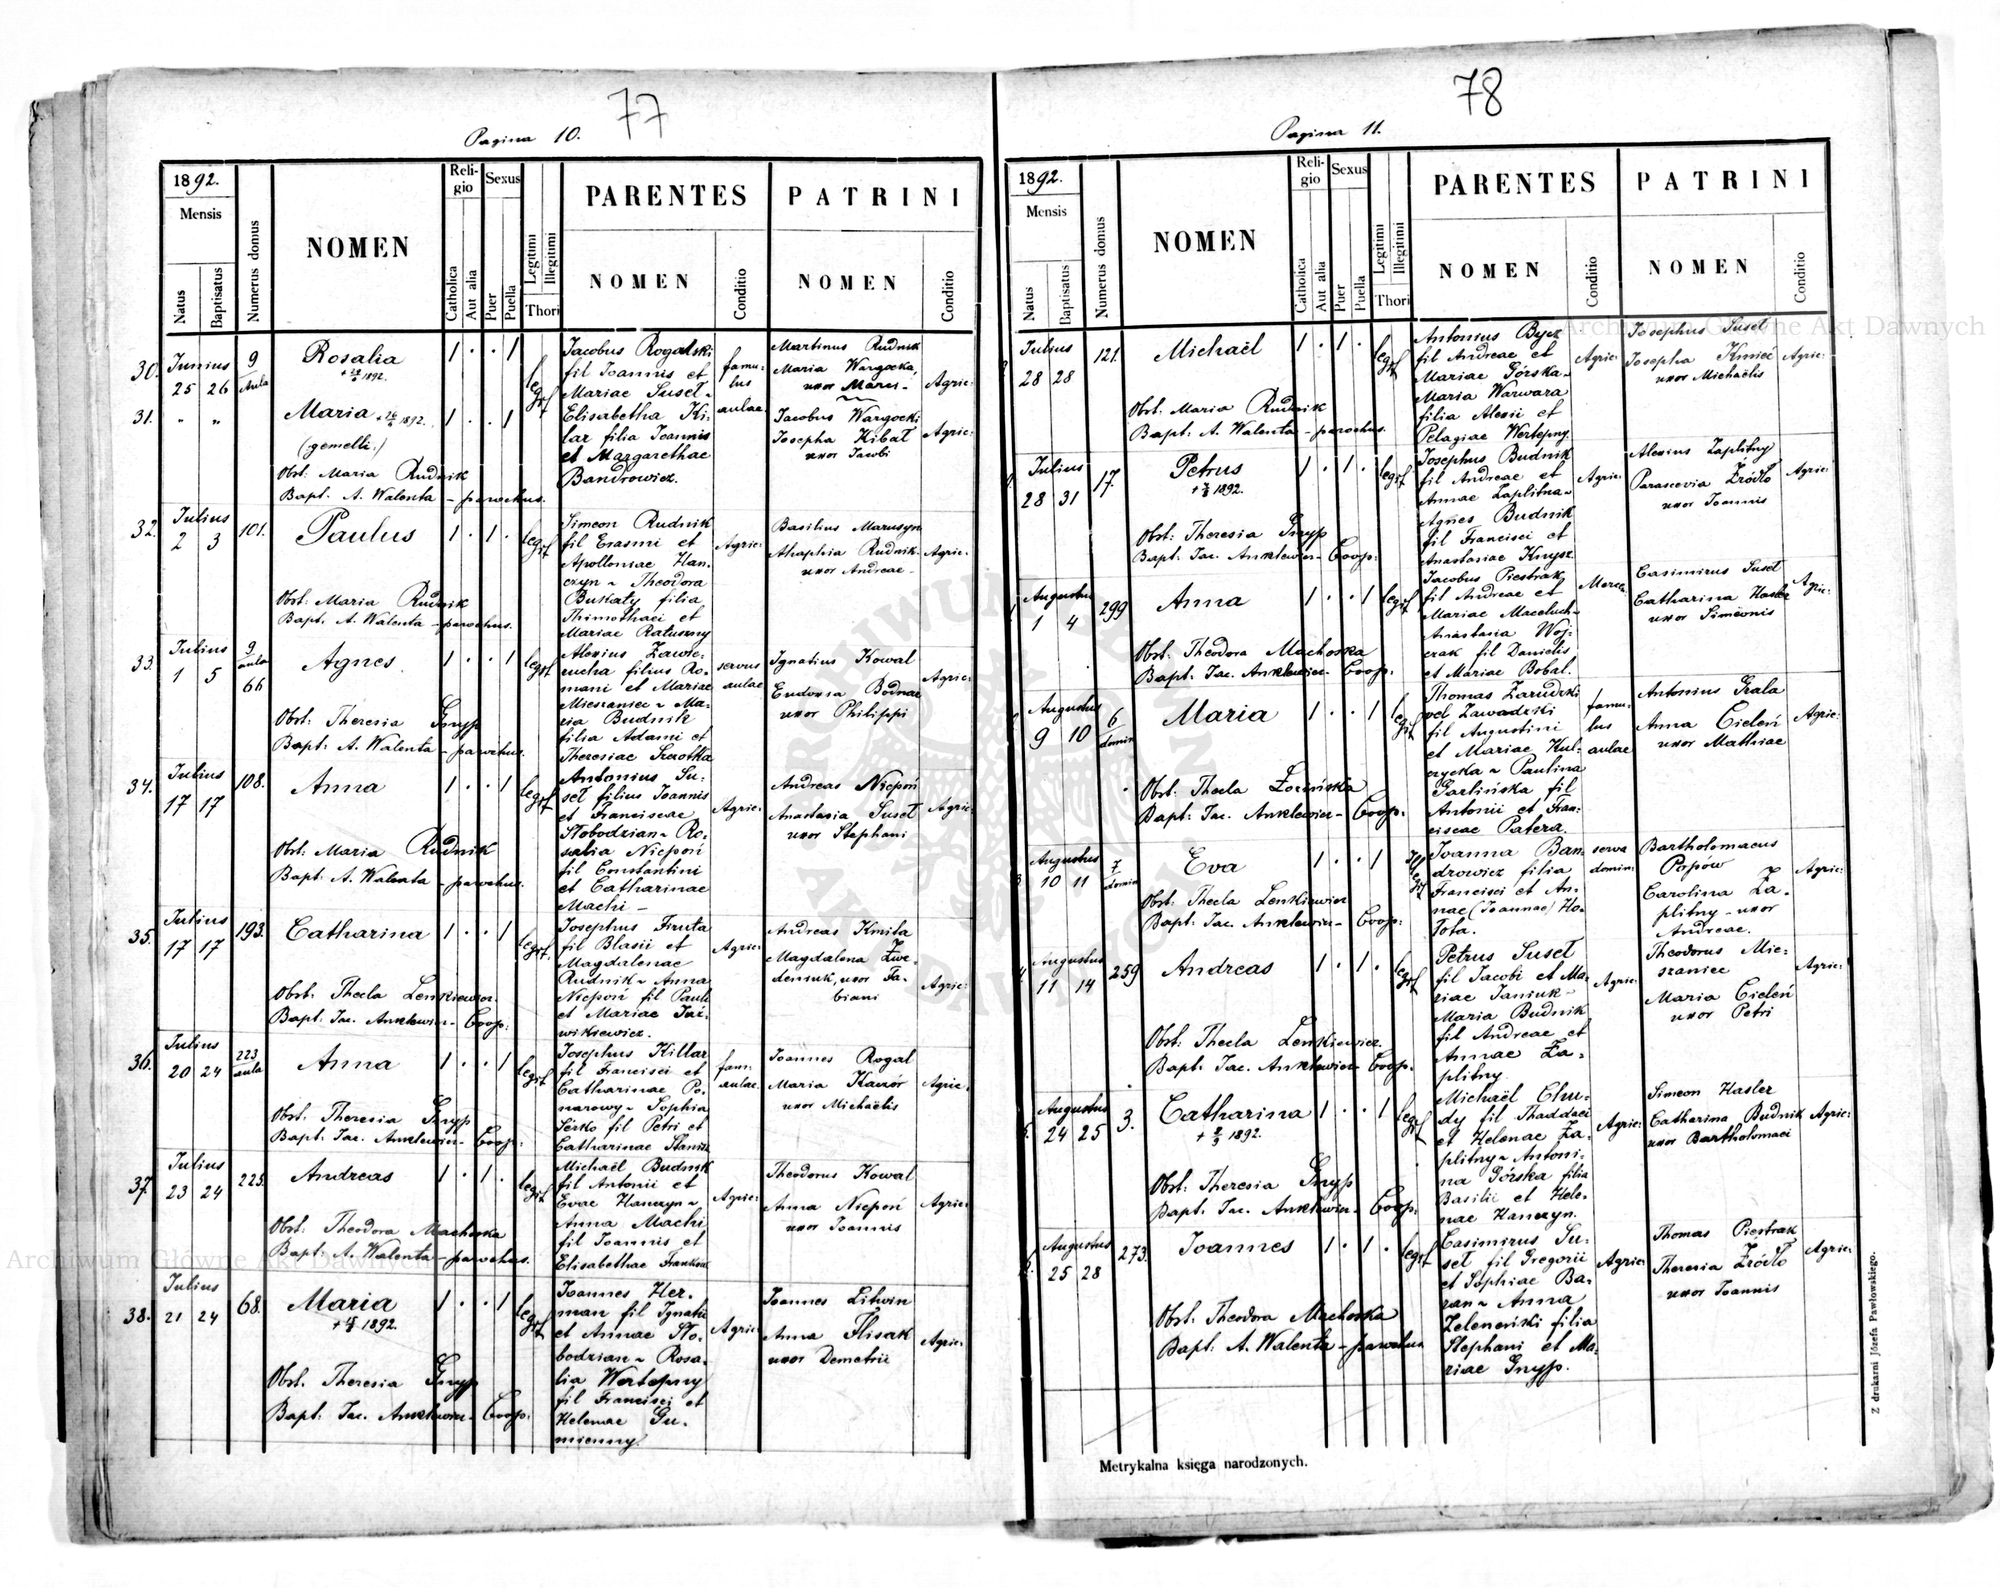 77
Pagina 10.
1892.
Mensis
Natus
Baptisatus
Numerus domus
NOMEN
Religio
Catholica
Aut alia
Sexus
Puer
Puella
Legitimi
Illegitimi
Thori
PARENTES
NOMEN
Conditio
PATRINI
NOMEN
Conditio
30.
Junius
25 26
9
Aula
Rosalia
1892.
1 . . 1
legit
Jacobus Rogalski
fil Joannis et
Mariae Suset ~
Elisabetha Ki-
lar filia Joannis
et Margarethae
Bandrowicz.
famu-
lus
aulae
Martinus Rudnik
Maria Wargocka,
uxor Marci -
Agric:
31.
" "
Maria
1892.
(gemelli.)
1 . . 1
Jacobus Wargocki
Josepha Kibał
uxor Jacobi
Agric:
Obst. Maria Rudnik
Bapt. A. Walenta - parochus.
32.
Julius
2 3
101.
Paulus
1 . 1 .
legit.
Simeon Rudnik
fil Erasmi et
Apolloniae Han-
czyn ~ Theodora
Bukaty filia
Thimothaei et
Mariae Ratuszny
Agric:
Basilius Marusyn
Ahaphia Rudnik -
uxor Andreae -
Agric:
Obst: Maria Rudnik
Bapt. A. Walenta - parochus.
33.
Julius
1 5
9
aula
66
Agnes.
1 . . 1
legit
Alexius Zawie-
rucha filius Ro-
mani et Mariae
Mieszaniec ~ Ma-
ria Budnik
filia Adami et
Theresiae Szrotka
servus
aulae
Ignatius Kowal
Eudoxia Bodnar
uxor Philippi
Agric:
Obst: Theresia Gnyp
Bapt: A. Walenta - parochus.
34.
Julius
17 17
108.
Anna
1 . . 1
legit
Antonius Su-
set filius Joannis
et Franciscae
Słobodzian ~ Ro-
salia Niepoń
fil Constantini
et Catharinae
Machi -
Agric:
Andreas Niepoń
Anastasia Suset
uxor Stephani
Agric:
Obst: Maria Rudnik
Bapt: A. Walenta - parochus.
35.
Julius
17 17
193.
Catharina
1 . . 1
legit.
Josephus Firuta
fil Blasii et
Magdalenae
Rudnik ~ Anna
Niepoń fil Pauli
et Mariae
Agric:
Andreas Kmita
Magdalena
uxor Fa-
biani
Agric:
Obst: Thecla Lenkiewicz.
Bapt: Jac. Anklewicz - Coop:
36.
Julius
20 24
223
aula
Anna
1 . . 1
legit
Josephus Killar
fil Francisci et
Catharinae Po-
narowy ~ Sophia
Serko fil Petri et
Catharinae
fam:
aulae.
Joannes Rogal
Maria Kaczór
uxor Michaëlis
Agric.
Obst: Theresia Gnyp
Bapt: Jac. Anklewicz - Coop:
37.
Julius
23 24
225.
Andreas
1 . 1 .
legit
Michaël Budnik
fil Antonii et
Evae Hanczyn ~
Anna Machi
fil Joannis et
Elisabethae
Agric:
Theodorus Kowal
Anna Niepoń
uxor Joannis
Agric:
Obst: Theodora Machoska
Bapt: A. Walenta - parochus.
38.
Julius
21 24
68.
Maria
1892.
1 . . 1
legit
Joannes Her-
man fil Ignatii
et Annae Sło-
bodzian ~ Rosa-
lia Wertepny
fil Francisci et
Helenae Gu-
mienny.
Agric:
Joannes Litwin
Anna Flisak
uxor Demetrii
Agric:
Obst. Theresia Gnyp
Bapt: Jac. Anklewicz - Coop:
78
Pagina 11.
1892.
Mensis
Natus
Baptisatus
Numerus domus
NOMEN
Religio
Catholica
Aut alia
Sexus
Puer
Puella
Legitimi
Illegitimi
Thori
PARENTES
NOMEN
Conditio
PATRINI
NOMEN
Conditio
Julius
28 28
121.
Michaël
1 . 1 .
legit
Antonius Bycz
fil Andreae et
Mariae Górska ~
Maria Warwara
filia Alexii et
Pelagiae Wertepny.
Agric:
Josephus Suset
Josepha Kmieć
uxor Michaëlis
Agric:
Obst: Maria Rudnik
Bapt: A. Walenta - parochus.
Julius
28 31
17.
Petrus
1892.
1 . 1 .
legit
Josephus Budnik
fil Andreae et
Annae Zaplitna ~
Agnes Budnik
fil Francisci et
Anastasiae Knysz
Agric:
Alexius Zaplitny
Parascevia Źródło
uxor Joannis
Agric:
Obst: Theresia Gnyp
Bapt: Jac. Anklewicz - Coop:
Augustus
1 4
299
Anna
1 . . 1
legit
Jacobus Piestrak
fil Andreae et
Mariae Maceluch ~
Anastasia Woj-
czak fil Danielis
et Mariae Bobal.
Casimirus Suset
Catharina Hasler
uxor Simeonis
Agric:
Obst: Theodora Machoska
Bapt: Jac. Anklewicz - Coop.
Augustus
9 10
6
domin
Maria
1 . . 1
legit
Thomas Zarudzki
vel Zawadzki
fil Augustini
et Mariae Kul-
czycka ~ Paulina
Garlińska fil
Antonii et Fran-
ciscae Patera.
famu-
lus
aulae
Antonius Szala
Anna Cieleń
uxor Mathiae
Agric:
Obst: Thecla
Bapt: Jac. Anklewicz - Coop:
Augustus
10 11
7
domin
Eva
1 . . 1
Illegit
Joanna Ban-
drowicz filia
Francisci et An-
nae (Joannae) Ho-
łota.
serva
domin:
Bartholomaeus
Popów
Carolina Za-
plitny - uxor
Andreae.
Agric:
Obst: Thecla Lenkiewicz
Bapt: Jac. Anklewicz - Coop:
Augustus
11 14
259
Andreas
1 . 1 .
legit
Petrus Suset
fil Jacobi et Ma-
riae Janiuk -
Maria Budnik
fil Andreae et
Annae Za-
plitny
Agric:
Theodorus Mie-
szaniec
Maria Cieleń
uxor Petri
Agric:
Obst: Thecla Lenkiewicz
Bapt: Jac. Anklewicz - Coop.
Augustus
24 25
3.
Catharina
1892.
1 . . 1
legit
Michaël Chu-
dy fil Thaddaei
et Helenae Za-
plitny ~ Antoni-
na Górska filia
Basilii et Hele-
nae Hanczyn.
Agric:
Simeon Hasler
Catharina Budnik
uxor Bartholomaei
Agric:
Obst: Theresia Gnyp
Bapt: Jac: Anklewicz - Coop.
Augustus
25 28
273.
Joannes
1 . 1 .
legit
Casimirus Su-
set fil Gregorii
et Sophiae Ba-
ran ~ Anna
Zeleneński filia
Stephani et Ma-
riae Gnyp.
Agric:
Thomas Piestrak
Theresia Źródło
uxor Joannis
Agric:
Obst: Theodora Machoska
Bapt: A. Walenta - parochus
Metrykalna księga narodzonych.
Z drukarni Józefa Pawłowskiego.
Archiwum Główne Akt Dawnych
Archiwum Główne Akt Dawnych